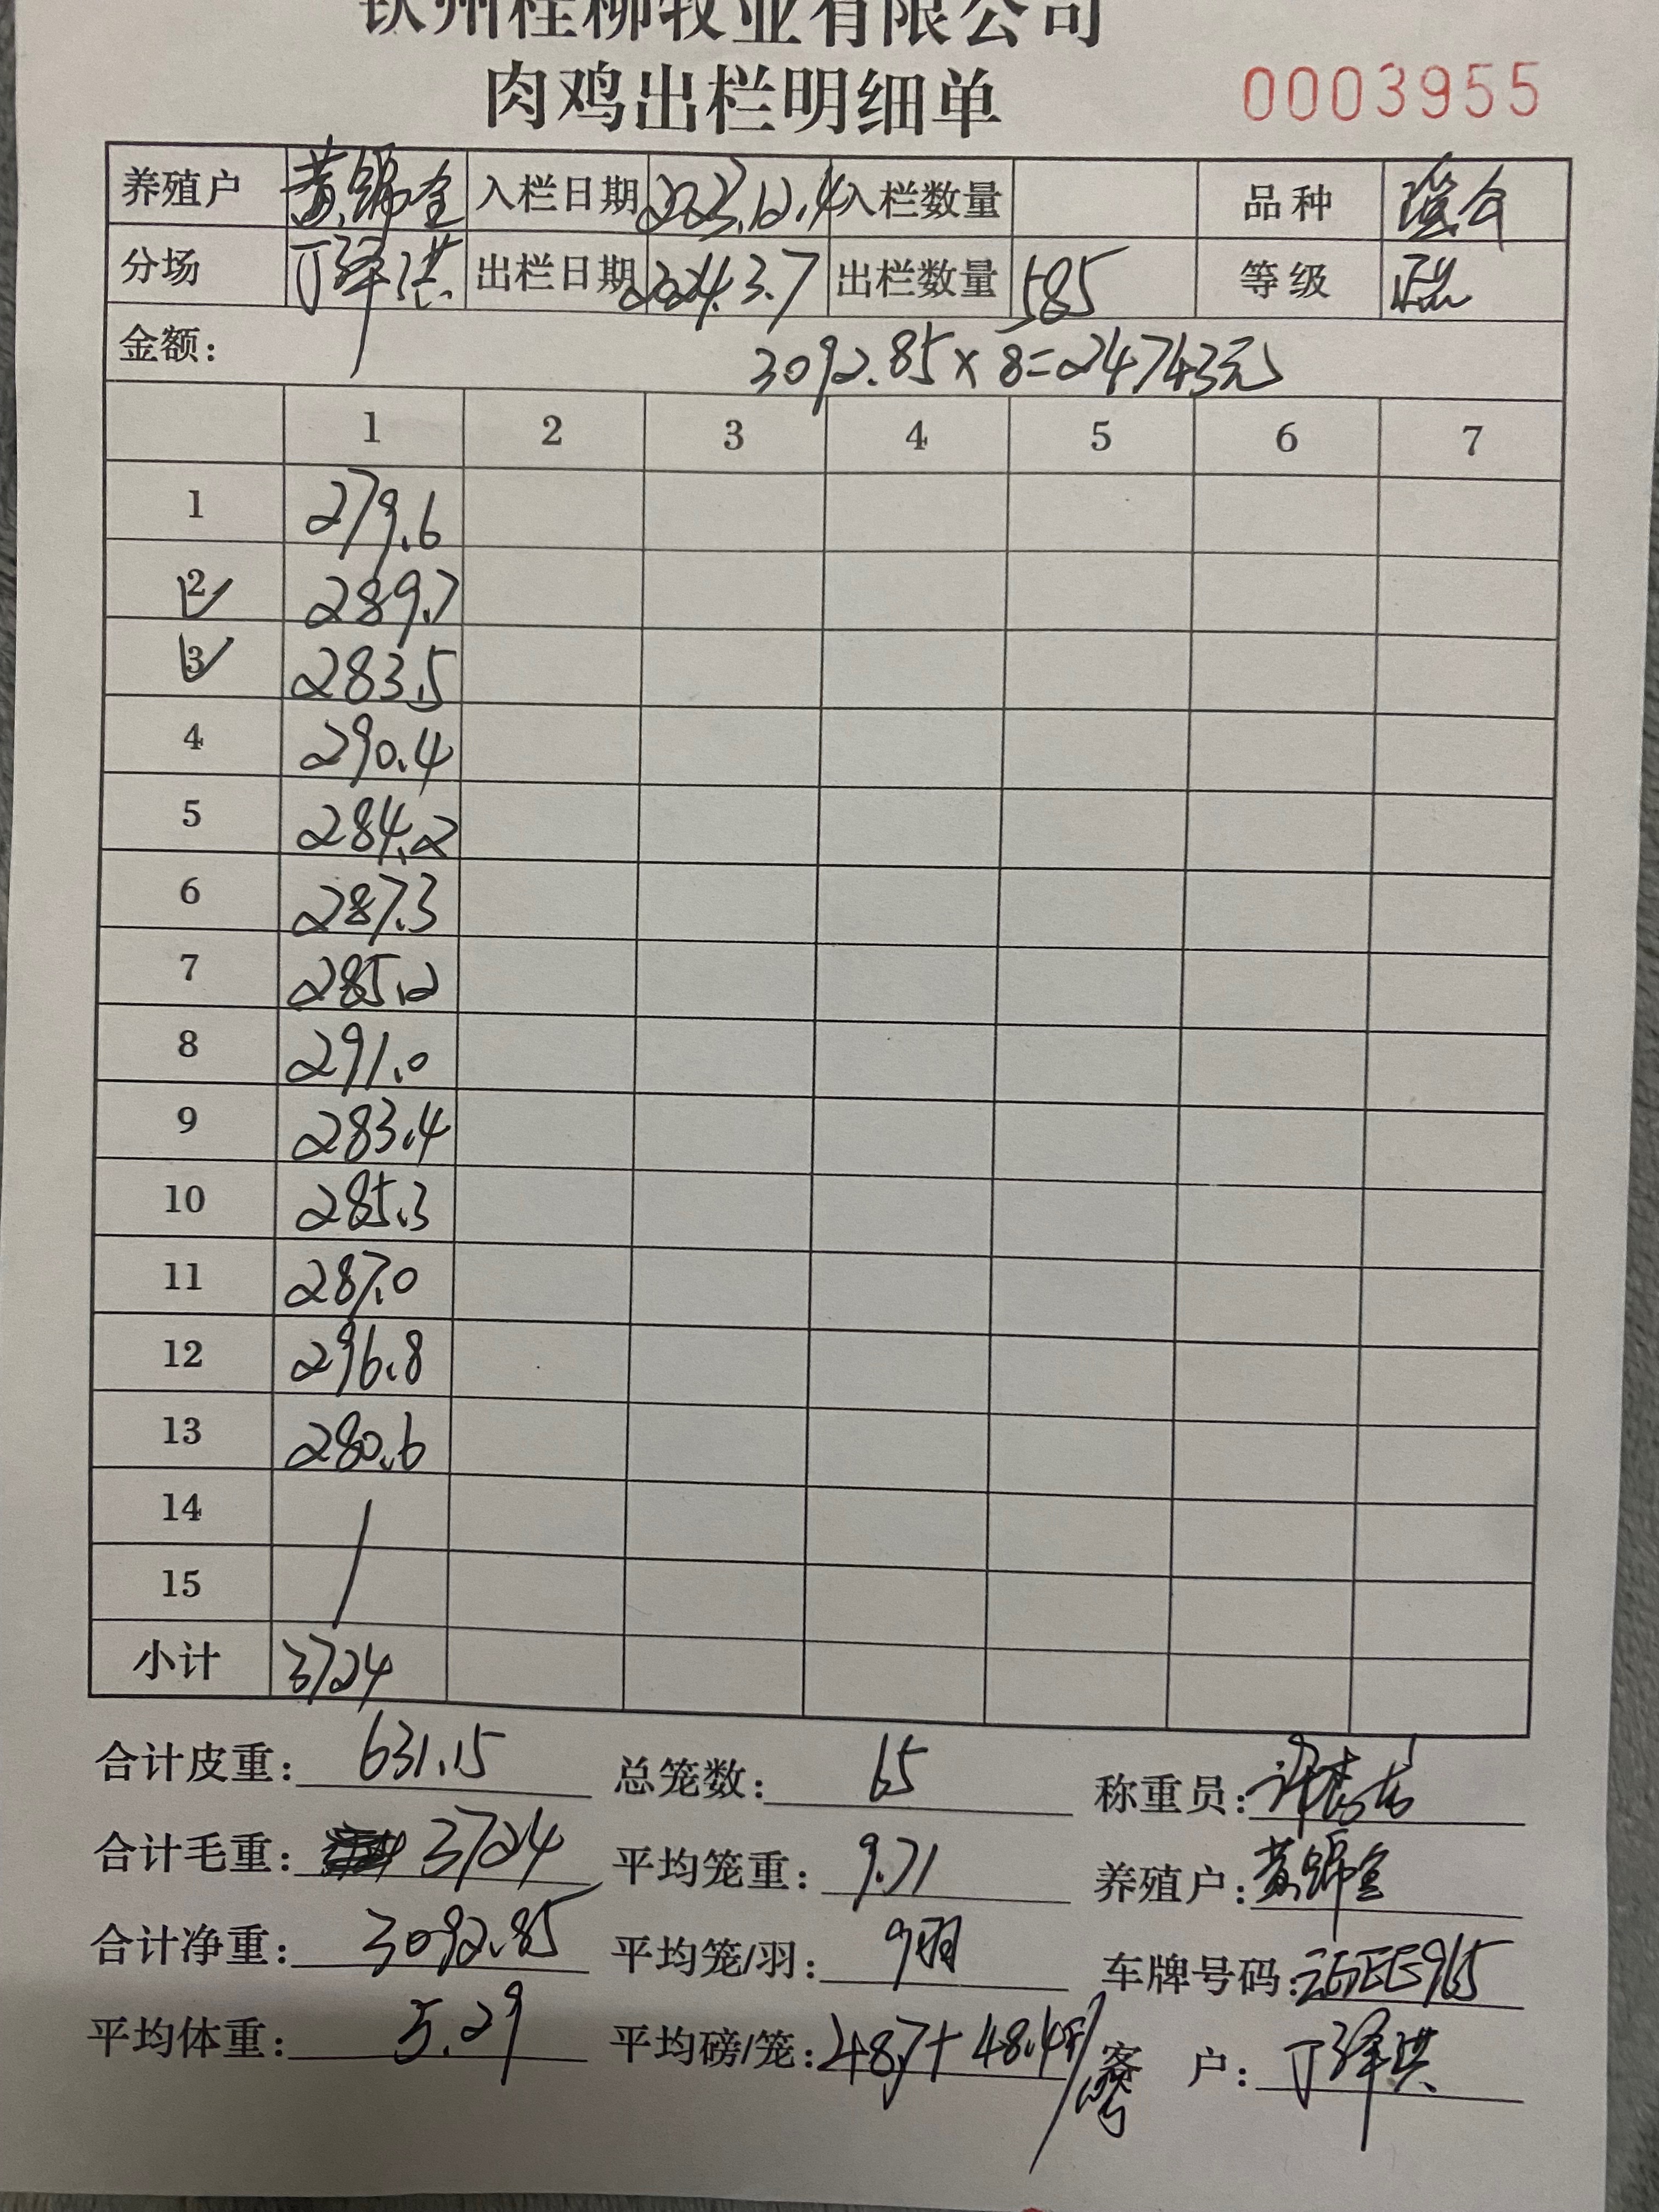 钦州桂柳牧业有限公司
肉鸡出栏明细单 0003955
养殖户 黄锦全 入栏日期 2023.12.4 入栏数量 品种
分场 丁泽洪 出栏日期 2024.3.7 出栏数量 585 等级
金额: 3092.85×8=24743元
1 2 3 4 5 6 7
1 279.6
2 289.7
3 283.5
4 290.4
5 284.2
6 287.3
7 285.2
8 291.0
9 283.4
10 285.3
11 287.0
12 296.8
13 280.6
14
15
小计 3724
合计皮重: 631.15 总笼数: 65 称重员:
合计毛重: 3724 平均笼重: 9.71 养殖户: 黄锦全
合计净重: 3092.85 平均笼/羽: 9羽 车牌号码:
平均体重: 5.29 平均磅/笼: 48.7+48.4 客户: 丁泽洪